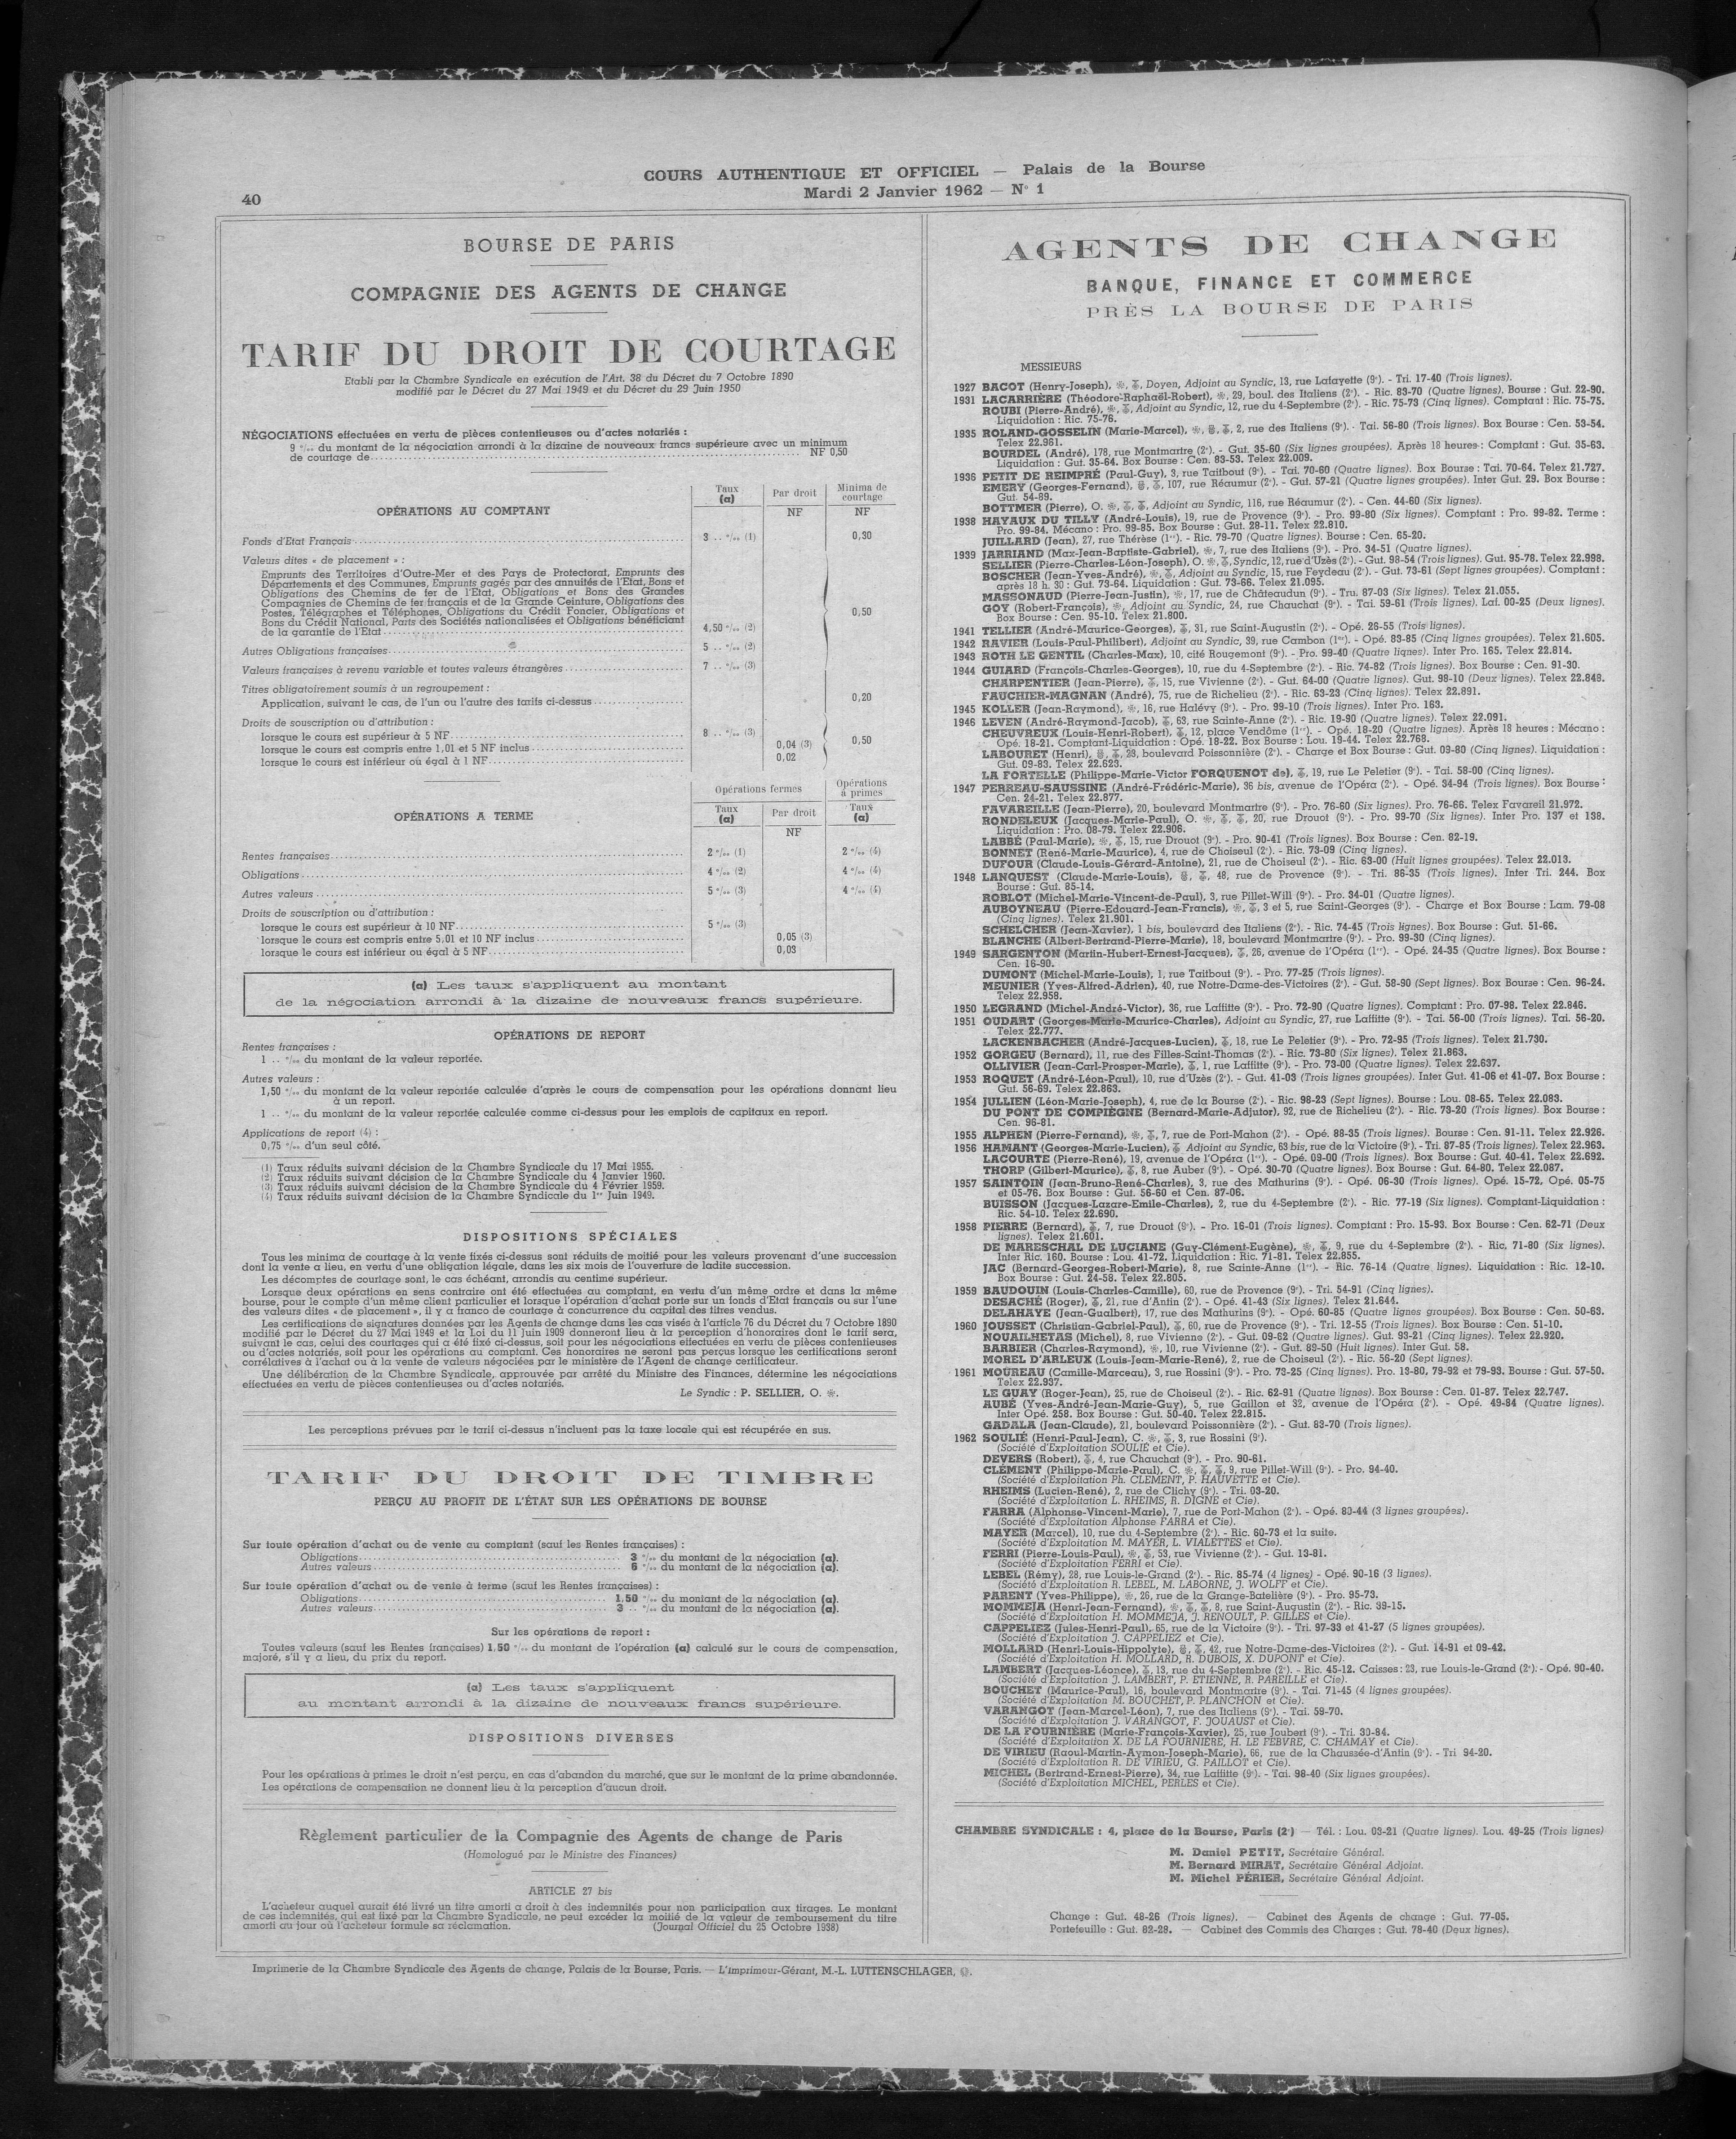 COURS AUTHENTIQUE ET OFFICIEL — Palais de la Bourse
40
Mardi 2 Janvier 1962 — N° 1
BOURSE DE PARIS
COMPAGNIE DES AGENTS DE CHANGE
TARIF DU DROIT DE COURTAGE
Etabli par la Chambre Syndicale en exécution de l'Art. 38 du Décret du 7 Octobre 1890
modifié par le Décret du 27 Mai 1949 et du Décret du 29 Juin 1950
NÉGOCIATIONS effectuées en vertu de pièces contentieuses ou d'actes notariés :
9 °/°° du montant de la négociation arrondi à la dizaine de nouveaux francs supérieure avec un minimum
de courtage de NF 0,50
OPÉRATIONS AU COMPTANT
Taux (a) Par droit Minima de courtage
NF NF
Fonds d'Etat Français 3 .. °/°° (1) 0,30
Valeurs dites « de placement » :
Emprunts des Territoires d'Outre-Mer et des Pays de Protectorat, Emprunts des
Départements et des Communes, Emprunts gagés par des annuités de l'Etat, Bons et
Obligations des Chemins de fer de l'Etat, Obligations et Bons des Grandes
Compagnies de Chemins de fer français et de la Grande Ceinture, Obligations des
Postes, Télégraphes et Téléphones, Obligations du Crédit Foncier, Obligations et
Bons du Crédit National, Parts des Sociétés nationalisées et Obligations bénéficiant
de la garantie de l'Etat 4,50 °/°° (2) 0,50
Autres Obligations françaises 5 .. °/°° (2)
Valeurs françaises à revenu variable et toutes valeurs étrangères 7 .. °/°° (3)
Titres obligatoirement soumis à un regroupement :
Application, suivant le cas, de l'un ou l'autre des tarifs ci-dessus 0,20
Droits de souscription ou d'attribution :
lorsque le cours est supérieur à 5 NF 8 .. °/°° (3)
lorsque le cours est compris entre 1,01 et 5 NF inclus 0,04 (3) 0,50
lorsque le cours est inférieur ou égal à 1 NF 0,02
OPÉRATIONS A TERME
Opérations fermes Opérations à primes
Taux (a) Par droit Taux (a)
NF
Rentes françaises 2 °/°° (1) 2 °/°° (4)
Obligations 4 °/°° (2) 4 °/°° (4)
Autres valeurs 5 °/°° (3) 4 °/°° (4)
Droits de souscription ou d'attribution :
lorsque le cours est supérieur à 10 NF 5 °/°° (3)
lorsque le cours est compris entre 5,01 et 10 NF inclus 0,05 (3)
lorsque le cours est inférieur ou égal à 5 NF 0,03
(a) Les taux s'appliquent au montant
de la négociation arrondi à la dizaine de nouveaux francs supérieure.
OPÉRATIONS DE REPORT
Rentes françaises :
1 .. °/°° du montant de la valeur reportée.
Autres valeurs :
1,50 °/°° du montant de la valeur reportée calculée d'après le cours de compensation pour les opérations donnant lieu
à un report.
1 .. °/°° du montant de la valeur reportée calculée comme ci-dessus pour les emplois de capitaux en report.
Applications de report (4) :
0,75 °/°° d'un seul côté.
(1) Taux réduits suivant décision de la Chambre Syndicale du 17 Mai 1955.
(2) Taux réduits suivant décision de la Chambre Syndicale du 4 Janvier 1960.
(3) Taux réduits suivant décision de la Chambre Syndicale du 4 Février 1959.
(4) Taux réduits suivant décision de la Chambre Syndicale du 1er Juin 1949.
DISPOSITIONS SPÉCIALES
Tous les minima de courtage à la vente fixés ci-dessus sont réduits de moitié pour les valeurs provenant d'une succession
dont la vente a lieu, en vertu d'une obligation légale, dans les six mois de l'ouverture de ladite succession.
Les décomptes de courtage sont, le cas échéant, arrondis au centime supérieur.
Lorsque deux opérations en sens contraire ont été effectuées au comptant, en vertu d'un même ordre et dans la même
bourse, pour le compte d'un même client particulier et lorsque l'opération d'achat porte sur un fonds d'Etat français ou sur l'une
des valeurs dites « de placement », il y a franco de courtage à concurrence du capital des titres vendus.
Les certifications de signatures données par les Agents de change dans les cas visés à l'article 76 du Décret du 7 Octobre 1890
modifié par le Décret du 27 Mai 1949 et la Loi du 11 Juin 1909 donneront lieu à la perception d'honoraires dont le tarif sera,
suivant le cas, celui des courtages qui a été fixé ci-dessus, soit pour les négociations effectuées en vertu de pièces contentieuses
ou d'actes notariés, soit pour les opérations au comptant. Ces honoraires ne seront pas perçus lorsque les certifications seront
corrélatives à l'achat ou à la vente de valeurs négociées par le ministère de l'Agent de change certificateur.
Une délibération de la Chambre Syndicale, approuvée par arrêté du Ministre des Finances, détermine les négociations
effectuées en vertu de pièces contentieuses ou d'actes notariés.
Le Syndic : P. SELLIER, O. ※.
Les perceptions prévues par le tarif ci-dessus n'incluent pas la taxe locale qui est récupérée en sus.
TARIF DU DROIT DE TIMBRE
PERÇU AU PROFIT DE L'ÉTAT SUR LES OPÉRATIONS DE BOURSE
Sur toute opération d'achat ou de vente au comptant (sauf les Rentes françaises) :
Obligations 3 °/°° du montant de la négociation (a).
Autres valeurs 6 °/°° du montant de la négociation (a).
Sur toute opération d'achat ou de vente à terme (sauf les Rentes françaises) :
Obligations 1,50 °/°° du montant de la négociation (a).
Autres valeurs 3 .. °/°° du montant de la négociation (a).
Sur les opérations de report :
Toutes valeurs (sauf les Rentes françaises) 1,50 °/°° du montant de l'opération (a) calculé sur le cours de compensation,
majoré, s'il y a lieu, du prix du report.
(a) Les taux s'appliquent
au montant arrondi à la dizaine de nouveaux francs supérieure.
DISPOSITIONS DIVERSES
Pour les opérations à primes le droit n'est perçu, en cas d'abandon du marché, que sur le montant de la prime abandonnée.
Les opérations de compensation ne donnent lieu à la perception d'aucun droit.
Règlement particulier de la Compagnie des Agents de change de Paris
(Homologué par le Ministre des Finances)
ARTICLE 27 bis
L'acheteur auquel aurait été livré un titre amorti a droit à des indemnités pour non participation aux tirages. Le montant
de ces indemnités, qui est fixé par la Chambre Syndicale, ne peut excéder la moitié de la valeur de remboursement du titre
amorti au jour où l'acheteur formule sa réclamation. (Journal Officiel du 25 Octobre 1938)
AGENTS DE CHANGE
BANQUE, FINANCE ET COMMERCE
PRÈS LA BOURSE DE PARIS
MESSIEURS
1927 BACOT (Henry-Joseph), Doyen, Adjoint au Syndic, 13, rue Lafayette (9e). - Tri. 17-40 (Trois lignes).
1931 LACARRIÈRE (Théodore-Raphaël-Robert), 29, boul. des Italiens (2e). - Ric. 83-70 (Quatre lignes). Bourse : Gut. 22-90.
ROUBI (Pierre-André), Adjoint au Syndic, 12, rue du 4-Septembre (2e). - Ric. 75-73 (Cinq lignes). Comptant : Ric. 75-75.
Liquidation : Ric. 75-76.
1935 ROLAND-GOSSELIN (Marie-Marcel), 2, rue des Italiens (9e). - Tai. 56-80 (Trois lignes). Box Bourse : Cen. 53-54.
Telex 22.961.
BOURDEL (André), 178, rue Montmartre (2e). - Gut. 35-60 (Six lignes groupées). Après 18 heures : Comptant : Gut. 35-63.
Liquidation : Gut. 35-64. Box Bourse : Cen. 83-53. Telex 22.009.
1936 PETIT DE REIMPRÉ (Paul-Guy), 3, rue Taitbout (9e). - Tai. 70-60 (Quatre lignes). Box Bourse : Tai. 70-64. Telex 21.727.
EMERY (Georges-Fernand), 107, rue Réaumur (2e). - Gut. 57-21 (Quatre lignes groupées). Inter Gut. 29. Box Bourse :
Gut. 54-89.
BOTTMER (Pierre), O. Adjoint au Syndic, 116, rue Réaumur (2e). - Cen. 44-60 (Six lignes).
1938 HAYAUX DU TILLY (André-Louis), 19, rue de Provence (9e). - Pro. 99-80 (Six lignes). Comptant : Pro. 99-82. Terme :
Pro. 99-84. Mécano : Pro. 99-85. Box Bourse : Gut. 28-11. Telex 22.810.
JUILLARD (Jean), 27, rue Thérèse (1er). - Ric. 79-70 (Quatre lignes). Bourse : Cen. 65-20.
1939 JARRIAND (Max-Jean-Baptiste-Gabriel), 7, rue des Italiens (9e). - Pro. 34-51 (Quatre lignes).
SELLIER (Pierre-Charles-Léon-Joseph), O. Syndic, 12, rue d'Uzès (2e). - Gut. 98-54 (Trois lignes). Gut. 95-78. Telex 22.998.
BOSCHER (Jean-Yves-André), Adjoint au Syndic, 15, rue Feydeau (2e). - Gut. 73-61 (Sept lignes groupées). Comptant :
après 18 h. 30 : Gut. 73-64. Liquidation : Gut. 73-66. Telex 21.095.
MASSONAUD (Pierre-Jean-Justin), 17, rue de Châteaudun (9e). - Tru. 87-03 (Six lignes). Telex 21.055.
GOY (Robert-François), Adjoint au Syndic, 24, rue Chauchat (9e). - Tai. 59-61 (Trois lignes). Laf. 00-25 (Deux lignes).
Box Bourse : Cen. 95-10. Telex 21.800.
1941 TELLIER (André-Maurice-Georges), 31, rue Saint-Augustin (2e). - Opé. 26-55 (Trois lignes).
1942 RAVIER (Louis-Paul-Philibert), Adjoint au Syndic, 39, rue Cambon (1er). - Opé. 83-85 (Cinq lignes groupées). Telex 21.605.
1943 ROTH LE GENTIL (Charles-Max), 10, cité Rougemont (9e). - Pro. 99-40 (Quatre lignes). Inter Pro. 165. Telex 22.814.
1944 GUIARD (François-Charles-Georges), 10, rue du 4-Septembre (2e). - Ric. 74-82 (Trois lignes). Box Bourse : Cen. 91-30.
CHARPENTIER (Jean-Pierre), 15, rue Vivienne (2e). - Gut. 64-00 (Quatre lignes). Gut. 98-10 (Deux lignes). Telex 22.849.
FAUCHIER-MAGNAN (André), 75, rue de Richelieu (2e). - Ric. 63-23 (Cinq lignes). Telex 22.891.
1945 KOLLER (Jean-Raymond), 16, rue Halévy (9e). - Pro. 99-10 (Trois lignes). Inter Pro. 163.
1946 LEVEN (André-Raymond-Jacob), 63, rue Sainte-Anne (2e). - Ric. 19-90 (Quatre lignes). Telex 22.091.
CHEUVREUX (Louis-Henri-Robert), 12, place Vendôme (1er). - Opé. 18-20 (Quatre lignes). Après 18 heures : Mécano :
Opé. 18-21. Comptant-Liquidation : Opé. 18-22. Box Bourse : Lou. 19-44. Telex 22.769.
LABOURET (Henri), 28, boulevard Poissonnière (2e). - Charge et Box Bourse : Gut. 09-80 (Cinq lignes). Liquidation :
Gut. 09-83. Telex 22.623.
LA FORTELLE (Philippe-Marie-Victor FORQUENOT de), 19, rue Le Peletier (9e). - Tai. 58-00 (Cinq lignes).
1947 PERREAU-SAUSSINE (André-Frédéric-Marie), 36 bis, avenue de l'Opéra (2e). - Opé. 34-94 (Trois lignes). Box Bourse :
Cen. 24-21. Telex 22.877.
FAVAREILLE (Jean-Pierre), 20, boulevard Montmartre (9e). - Pro. 76-60 (Six lignes). Pro. 76-66. Telex Favareil 21.972.
RONDELEUX (Jacques-Marie-Paul), O. 20, rue Drouot (9e). - Pro. 99-70 (Six lignes). Inter Pro. 137 et 138.
Liquidation : Pro. 08-79. Telex 22.906.
LABBÉ (Paul-Marie), 15, rue Drouot (9e). - Pro. 90-41 (Trois lignes). Box Bourse : Cen. 82-19.
BONNET (René-Marie-Maurice), 4, rue de Choiseul (2e). - Ric. 73-09 (Cinq lignes).
DUFOUR (Claude-Louis-Gérard-Antoine), 21, rue de Choiseul (2e). - Ric. 63-00 (Huit lignes groupées). Telex 22.013.
1948 LANQUEST (Claude-Marie-Louis), 48, rue de Provence (9e). - Tri. 86-35 (Trois lignes). Inter Tri. 244. Box
Bourse : Gut. 85-14.
ROBLOT (Michel-Marie-Vincent-de-Paul), 3, rue Pillet-Will (9e). - Pro. 34-01 (Quatre lignes).
AUBOYNEAU (Pierre-Edouard-Jean-Francis), 3 et 5, rue Saint-Georges (9e). - Charge et Box Bourse : Lam. 79-08
(Cinq lignes). Telex 21.901.
SCHELCHER (Jean-Xavier), 1 bis, boulevard des Italiens (2e). - Ric. 74-45 (Trois lignes). Box Bourse : Gut. 51-66.
BLANCHE (Albert-Bertrand-Pierre-Marie), 18, boulevard Montmartre (9e). - Pro. 99-30 (Cinq lignes).
1949 SARGENTON (Martin-Hubert-Ernest-Jacques), 26, avenue de l'Opéra (1er). - Opé. 24-35 (Quatre lignes). Box Bourse :
Cen. 16-90.
DUMONT (Michel-Marie-Louis), 1, rue Taitbout (9e). - Pro. 77-25 (Trois lignes).
MEUNIER (Yves-Alfred-Adrien), 40, rue Notre-Dame-des-Victoires (2e). - Gut. 58-90 (Sept lignes). Box Bourse : Cen. 96-24.
Telex 22.958.
1950 LEGRAND (Michel-André-Victor), 36, rue Laffitte (9e). - Pro. 72-90 (Quatre lignes). Comptant : Pro. 07-98. Telex 22.846.
1951 OUDART (Georges-Marie-Maurice-Charles), Adjoint au Syndic, 27, rue Laffitte (9e). - Tai. 56-00 (Trois lignes). Tai. 56-20.
Telex 22.777.
LACKENBACHER (André-Jacques-Lucien), 18, rue Le Peletier (9e). - Pro. 72-95 (Trois lignes). Telex 21.730.
1952 GORGEU (Bernard), 11, rue des Filles-Saint-Thomas (2e). - Ric. 73-80 (Six lignes). Telex 21.863.
OLLIVIER (Jean-Carl-Prosper-Marie), 1, rue Laffitte (9e). - Pro. 73-00 (Quatre lignes). Telex 22.637.
1953 ROQUET (André-Léon-Paul), 10, rue d'Uzès (2e). - Gut. 41-03 (Trois lignes groupées). Inter Gut. 41-06 et 41-07. Box Bourse :
Gut. 56-69. Telex 22.863.
1954 JULLIEN (Léon-Marie-Joseph), 4, rue de la Bourse (2e). - Ric. 98-23 (Sept lignes). Bourse : Lou. 08-65. Telex 22.083.
DU PONT DE COMPIÈGNE (Bernard-Marie-Adjutor), 92, rue de Richelieu (2e). - Ric. 73-20 (Trois lignes). Box Bourse :
Cen. 96-81.
1955 ALPHEN (Pierre-Fernand), 7, rue de Port-Mahon (2e). - Opé. 88-35 (Trois lignes). Bourse : Cen. 91-11. Telex 22.926.
1956 HAMANT (Georges-Marie-Lucien), Adjoint au Syndic, 63 bis, rue de la Victoire (9e). - Tri. 87-85 (Trois lignes). Telex 22.963.
LACOURTE (Pierre-René), 19, avenue de l'Opéra (1er). - Opé. 09-00 (Trois lignes). Box Bourse : Gut. 40-41. Telex 22.692.
THORP (Gilbert-Maurice), 8, rue Auber (9e). - Opé. 30-70 (Quatre lignes). Box Bourse : Gut. 64-80. Telex 22.087.
1957 SAINTOIN (Jean-Bruno-René-Charles), 3, rue des Mathurins (9e). - Opé. 06-30 (Trois lignes). Opé. 15-72, Opé. 05-75
et 05-76. Box Bourse : Gut. 56-60 et Cen. 87-06.
BUISSON (Jacques-Lazare-Emile-Charles), 2, rue du 4-Septembre (2e). - Ric. 77-19 (Six lignes). Comptant-Liquidation :
Ric. 54-10. Telex 22.690.
1958 PIERRE (Bernard), 7, rue Drouot (9e). - Pro. 16-01 (Trois lignes). Comptant : Pro. 15-93. Box Bourse : Cen. 62-71 (Deux
lignes). Telex 21.601.
DE MARESCHAL DE LUCIANE (Guy-Clément-Eugène), 9, rue du 4-Septembre (2e). - Ric. 71-80 (Six lignes).
Inter Ric. 160. Bourse : Lou. 41-72. Liquidation : Ric. 71-81. Telex 22.855.
JAC (Bernard-Georges-Robert-Marie), 8, rue Sainte-Anne (1er). - Ric. 76-14 (Quatre lignes). Liquidation : Ric. 12-10.
Box Bourse : Gut. 24-58. Telex 22.805.
1959 BAUDOUIN (Louis-Charles-Camille), 60, rue de Provence (9e). - Tri. 54-91 (Cinq lignes).
DESACHÉ (Roger), 21, rue d'Antin (2e). - Opé. 41-43 (Six lignes). Telex 21.644.
DELAHAYE (Jean-Gualbert), 17, rue des Mathurins (9e). - Opé. 60-85 (Quatre lignes groupées). Box Bourse : Cen. 50-63.
1960 JOUSSET (Christian-Gabriel-Paul), 60, rue de Provence (9e). - Tri. 12-55 (Trois lignes). Box Bourse : Cen. 51-10.
NOUAILHETAS (Michel), 8, rue Vivienne (2e). - Gut. 09-62 (Quatre lignes). Gut. 93-21 (Cinq lignes). Telex 22.920.
BARBIER (Charles-Raymond), 10, rue Vivienne (2e). - Gut. 89-50 (Huit lignes). Inter Gut. 58.
MOREL D'ARLEUX (Louis-Jean-Marie-René), 2, rue de Choiseul (2e). - Ric. 56-20 (Sept lignes).
1961 MOUREAU (Camille-Marceau), 3, rue Rossini (9e). - Pro. 73-25 (Cinq lignes). Pro. 13-80, 79-92 et 79-93. Bourse : Gut. 57-50.
Telex 22.937.
LE GUAY (Roger-Jean), 25, rue de Choiseul (2e). - Ric. 62-91 (Quatre lignes). Box Bourse : Cen. 01-87. Telex 22.747.
AUBÉ (Yves-André-Jean-Marie-Guy), 5, rue Gaillon et 32, avenue de l'Opéra (2e). - Opé. 49-84 (Quatre lignes).
Inter Opé. 258. Box Bourse : Gut. 50-40. Telex 22.815.
GADALA (Jean-Claude), 21, boulevard Poissonnière (2e). - Gut. 83-70 (Trois lignes).
1962 SOULIÉ (Henri-Paul-Jean), C. 3, rue Rossini (9e).
(Société d'Exploitation SOULIÉ et Cie).
DEVERS (Robert), 4, rue Chauchat (9e). - Pro. 90-61.
CLÉMENT (Philippe-Marie-Paul), C. 9, rue Pillet-Will (9e). - Pro. 94-40.
(Société d'Exploitation Ph. CLEMENT, P. HAUVETTE et Cie).
RHEIMS (Lucien-René), 2, rue de Clichy (9e). - Tri. 03-20.
(Société d'Exploitation L. RHEIMS, R. DIGNE et Cie).
FARRA (Alphonse-Vincent-Marie), 7, rue de Port-Mahon (2e). - Opé. 80-44 (3 lignes groupées).
(Société d'Exploitation Alphonse FARRA et Cie).
MAYER (Marcel), 10, rue du 4-Septembre (2e). - Ric. 60-73 et la suite.
(Société d'Exploitation M. MAYER, L. VIALETTES et Cie).
FERRI (Pierre-Louis-Paul), 53, rue Vivienne (2e). - Gut. 13-81.
(Société d'Exploitation FERRI et Cie).
LEBEL (Rémy), 28, rue Louis-le-Grand (2e). - Ric. 85-74 (4 lignes) - Opé. 90-16 (3 lignes).
(Société d'Exploitation R. LEBEL, M. LABORNE, J. WOLFF et Cie).
PARENT (Yves-Philippe), 26, rue de la Grange-Batelière (9e). - Pro. 95-73.
MOMMEJA (Henri-Jean-Fernand), 8, rue Saint-Augustin (2e). - Ric. 39-15.
(Société d'Exploitation H. MOMMEJA, J. RENOULT, P. GILLES et Cie).
CAPPELIEZ (Jules-Henri-Paul), 65, rue de la Victoire (9e). - Tri. 97-33 et 41-27 (5 lignes groupées).
(Société d'Exploitation J. CAPPELIEZ et Cie).
MOLLARD (Henri-Louis-Hippolyte), 42, rue Notre-Dame-des-Victoires (2e). - Gut. 14-91 et 09-42.
(Société d'Exploitation H. MOLLARD, R. DUBOIS, X. DUPONT et Cie).
LAMBERT (Jacques-Léonce), 13, rue du 4-Septembre (2e). - Ric. 45-12. Caisses : 23, rue Louis-le-Grand (2e). - Opé. 90-40.
(Société d'Exploitation J. LAMBERT, P. ETIENNE, R. PAREILLE et Cie).
BOUCHET (Maurice-Paul), 16, boulevard Montmartre (9e). - Tai. 71-45 (4 lignes groupées).
(Société d'Exploitation M. BOUCHET, P. PLANCHON et Cie).
VARANGOT (Jean-Marcel-Léon), 7, rue des Italiens (9e). - Tai. 59-70.
(Société d'Exploitation J. VARANGOT, F. JOUAUST et Cie).
DE LA FOURNIÈRE (Marie-François-Xavier), 25, rue Joubert (9e). - Tri. 30-84.
(Société d'Exploitation X. DE LA FOURNIERE, H. LE FEBVRE, C. CHAMAY et Cie).
DE VIRIEU (Raoul-Martin-Aymon-Joseph-Marie), 66, rue de la Chaussée-d'Antin (9e). - Tri 94-20.
(Société d'Exploitation R. DE VIRIEU, G. PAILLOT et Cie).
MICHEL (Bertrand-Ernest-Pierre), 34, rue Laffitte (9e). - Tai. 98-40 (Six lignes groupées).
(Société d'Exploitation MICHEL, PERLES et Cie).
CHAMBRE SYNDICALE : 4, place de la Bourse, Paris (2e) — Tél. : Lou. 03-21 (Quatre lignes). Lou. 49-25 (Trois lignes)
M. Daniel PETIT, Secrétaire Général.
M. Bernard MIRAT, Secrétaire Général Adjoint.
M. Michel PÉRIER, Secrétaire Général Adjoint.
Change : Gut. 48-26 (Trois lignes). — Cabinet des Agents de change : Gut. 77-05.
Portefeuille : Gut. 82-28. — Cabinet des Commis des Charges : Gut. 78-40 (Deux lignes).
Imprimerie de la Chambre Syndicale des Agents de change, Palais de la Bourse, Paris. — L'Imprimeur-Gérant, M.-L. LUTTENSCHLAGER,